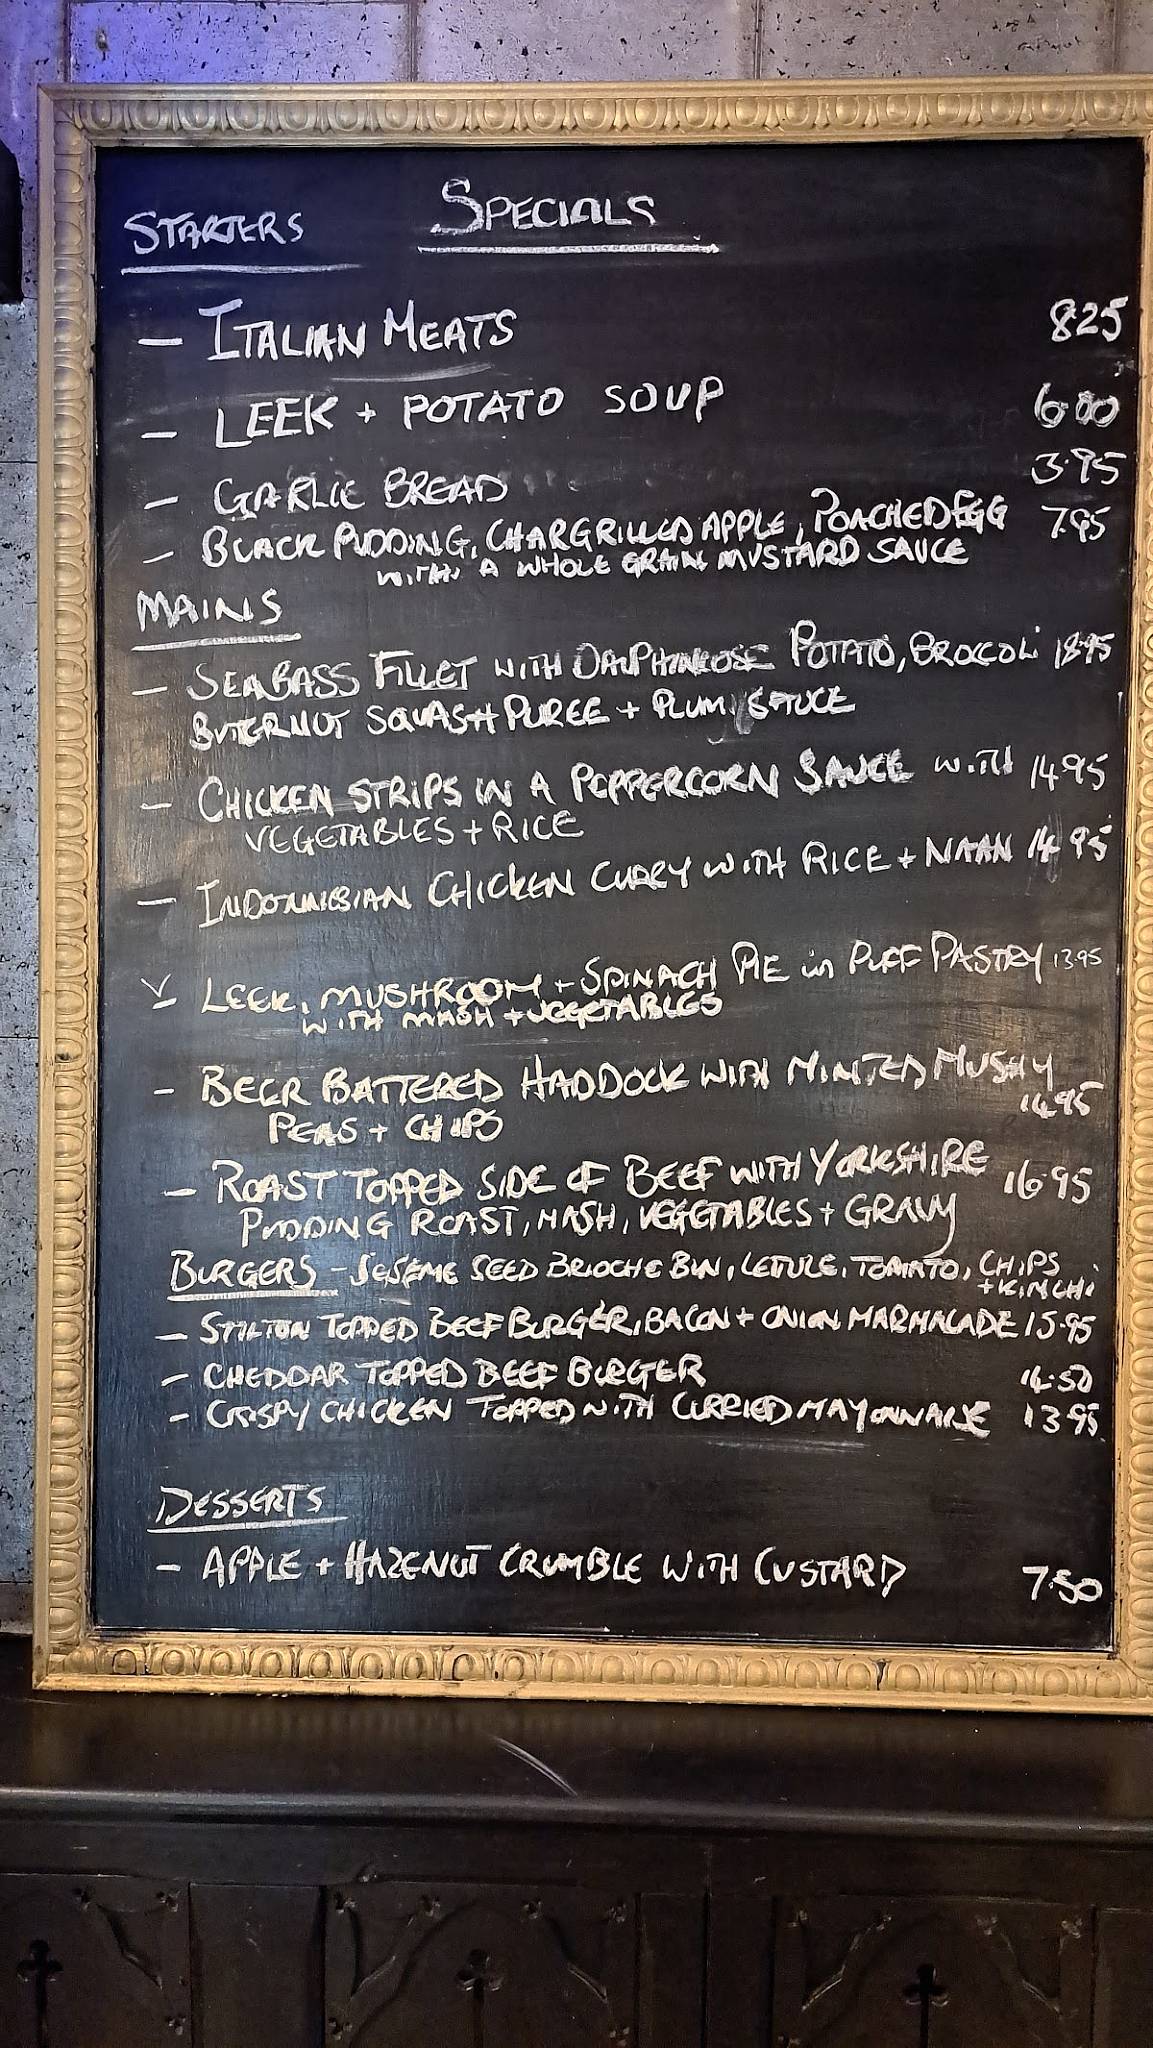 SPECIALS
STARTERS
- ITALIAN MEATS 8.25
- LEEK + POTATO SOUP 6.00
- GARLIC BREAD 3.95
- BLACK PUDDING, CHARGRILLED APPLE, POACHED EGG 7.95
WITH A WHOLE GRAIN MUSTARD SAUCE
MAINS
- SEABASS FILLET WITH DAUPHINOISE POTATO, BROCCOLI 18.95
BUTERNUT SQUASH PUREE + PLUM SAUCE
- CHICKEN STRIPS IN A PEPPERCORN SAUCE WITH 14.95
VEGETABLES + RICE
- INDONNESIAN CHICKEN CURRY WITH RICE + NAAN 14.95
V LEEK, MUSHROOM + SPINACH PIE in PUFF PASTRY 13.95
WITH MASH + VEGETABLES
- BEER BATTERED HADDOCK WITH MINTED MUSHY
PEAS + CHIPS 14.95
- ROAST TOPPED SIDE OF BEEF WITH YORKSHIRE 16.95
PUDDING ROAST, MASH, VEGETABLES + GRAVY
BURGERS - SESEME SEED BRIOCHE BUN, LETTUCE, TOMATO, CHIPS
+ KIMCHI
- STILTON TOPPED BEEF BURGER, BACON + ONION MARMALADE 15.95
- CHEDDAR TOPPED BEEF BURGER 14.50
- CRISPY CHICKEN TOPPED WITH CURRIED MAYONNAISE 13.95
DESSERTS
- APPLE + HAZENUT CRUMBLE WITH CUSTARD 7.50